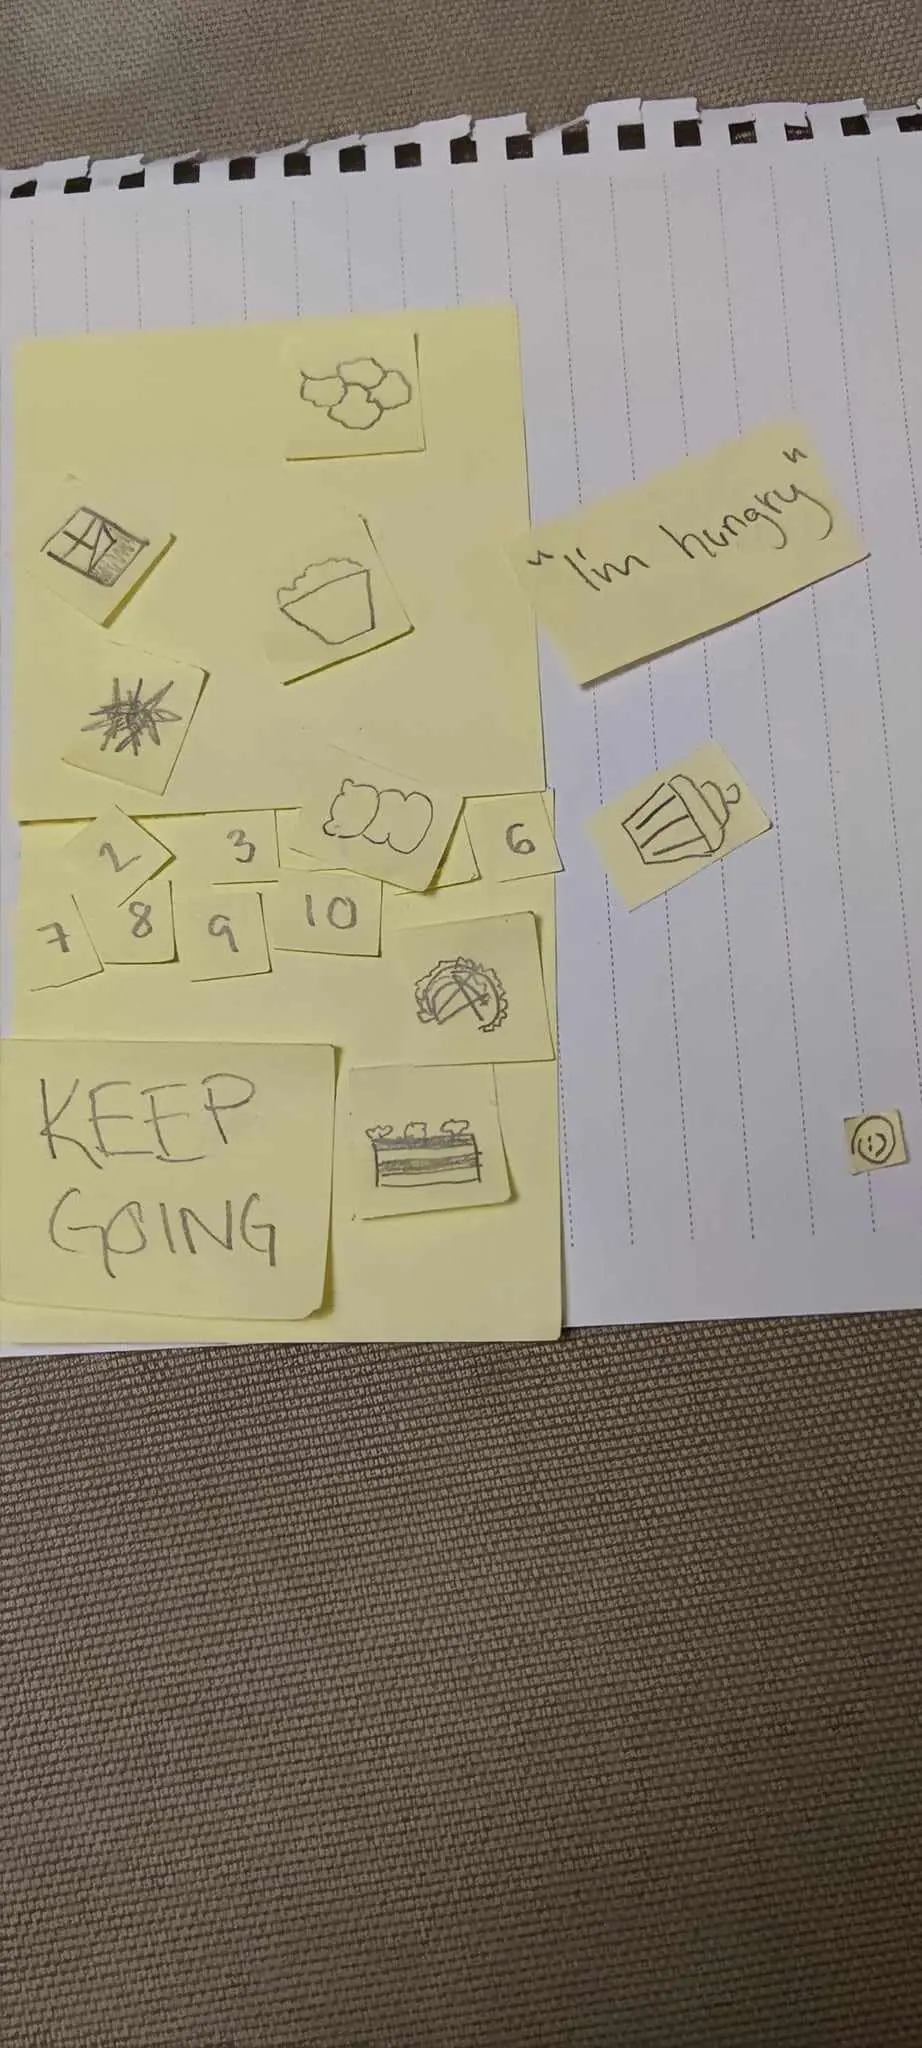 "I'm hungry"
2 3 6
7 8 9 10
KEEP
GOING